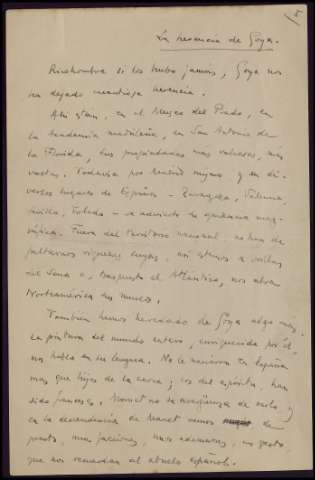 I
La herencia de Goya.
Ricohombre si los hubo jamás, Goya nos
ha dejado cuantiosa herencia.
Ahí están, en el Museo del Prado, en
la Academia madrileña, en San Antonio de
la Florida, sus propiedades más valiosas, más
vastas. Todavía por Madrid mismo y en di-
versos lugares de España - Zaragoza, Valencia,
Sevilla, Toledo - se advierte su opulencia mag-
nífica. Fuera del territorio nacional no han de
faltarnos riquezas suyas, así estemos a orillas
del Sena o, traspuesto el Atlántico, nos abra
Norteamérica sus museos.
También hemos heredado de Goya algo más.
La pintura del mundo entero, enriquecida por él
nos habla en su lengua. No le nacieron en España
más que hijos de la carne; los del espíritu, han
sido franceses. Manet no se avergüenza de serlo, y
en la descendencia de Manet vemos de
pronto, unas facciones, unos ademanes, un gesto,
que nos recuerdan al abuelo español.